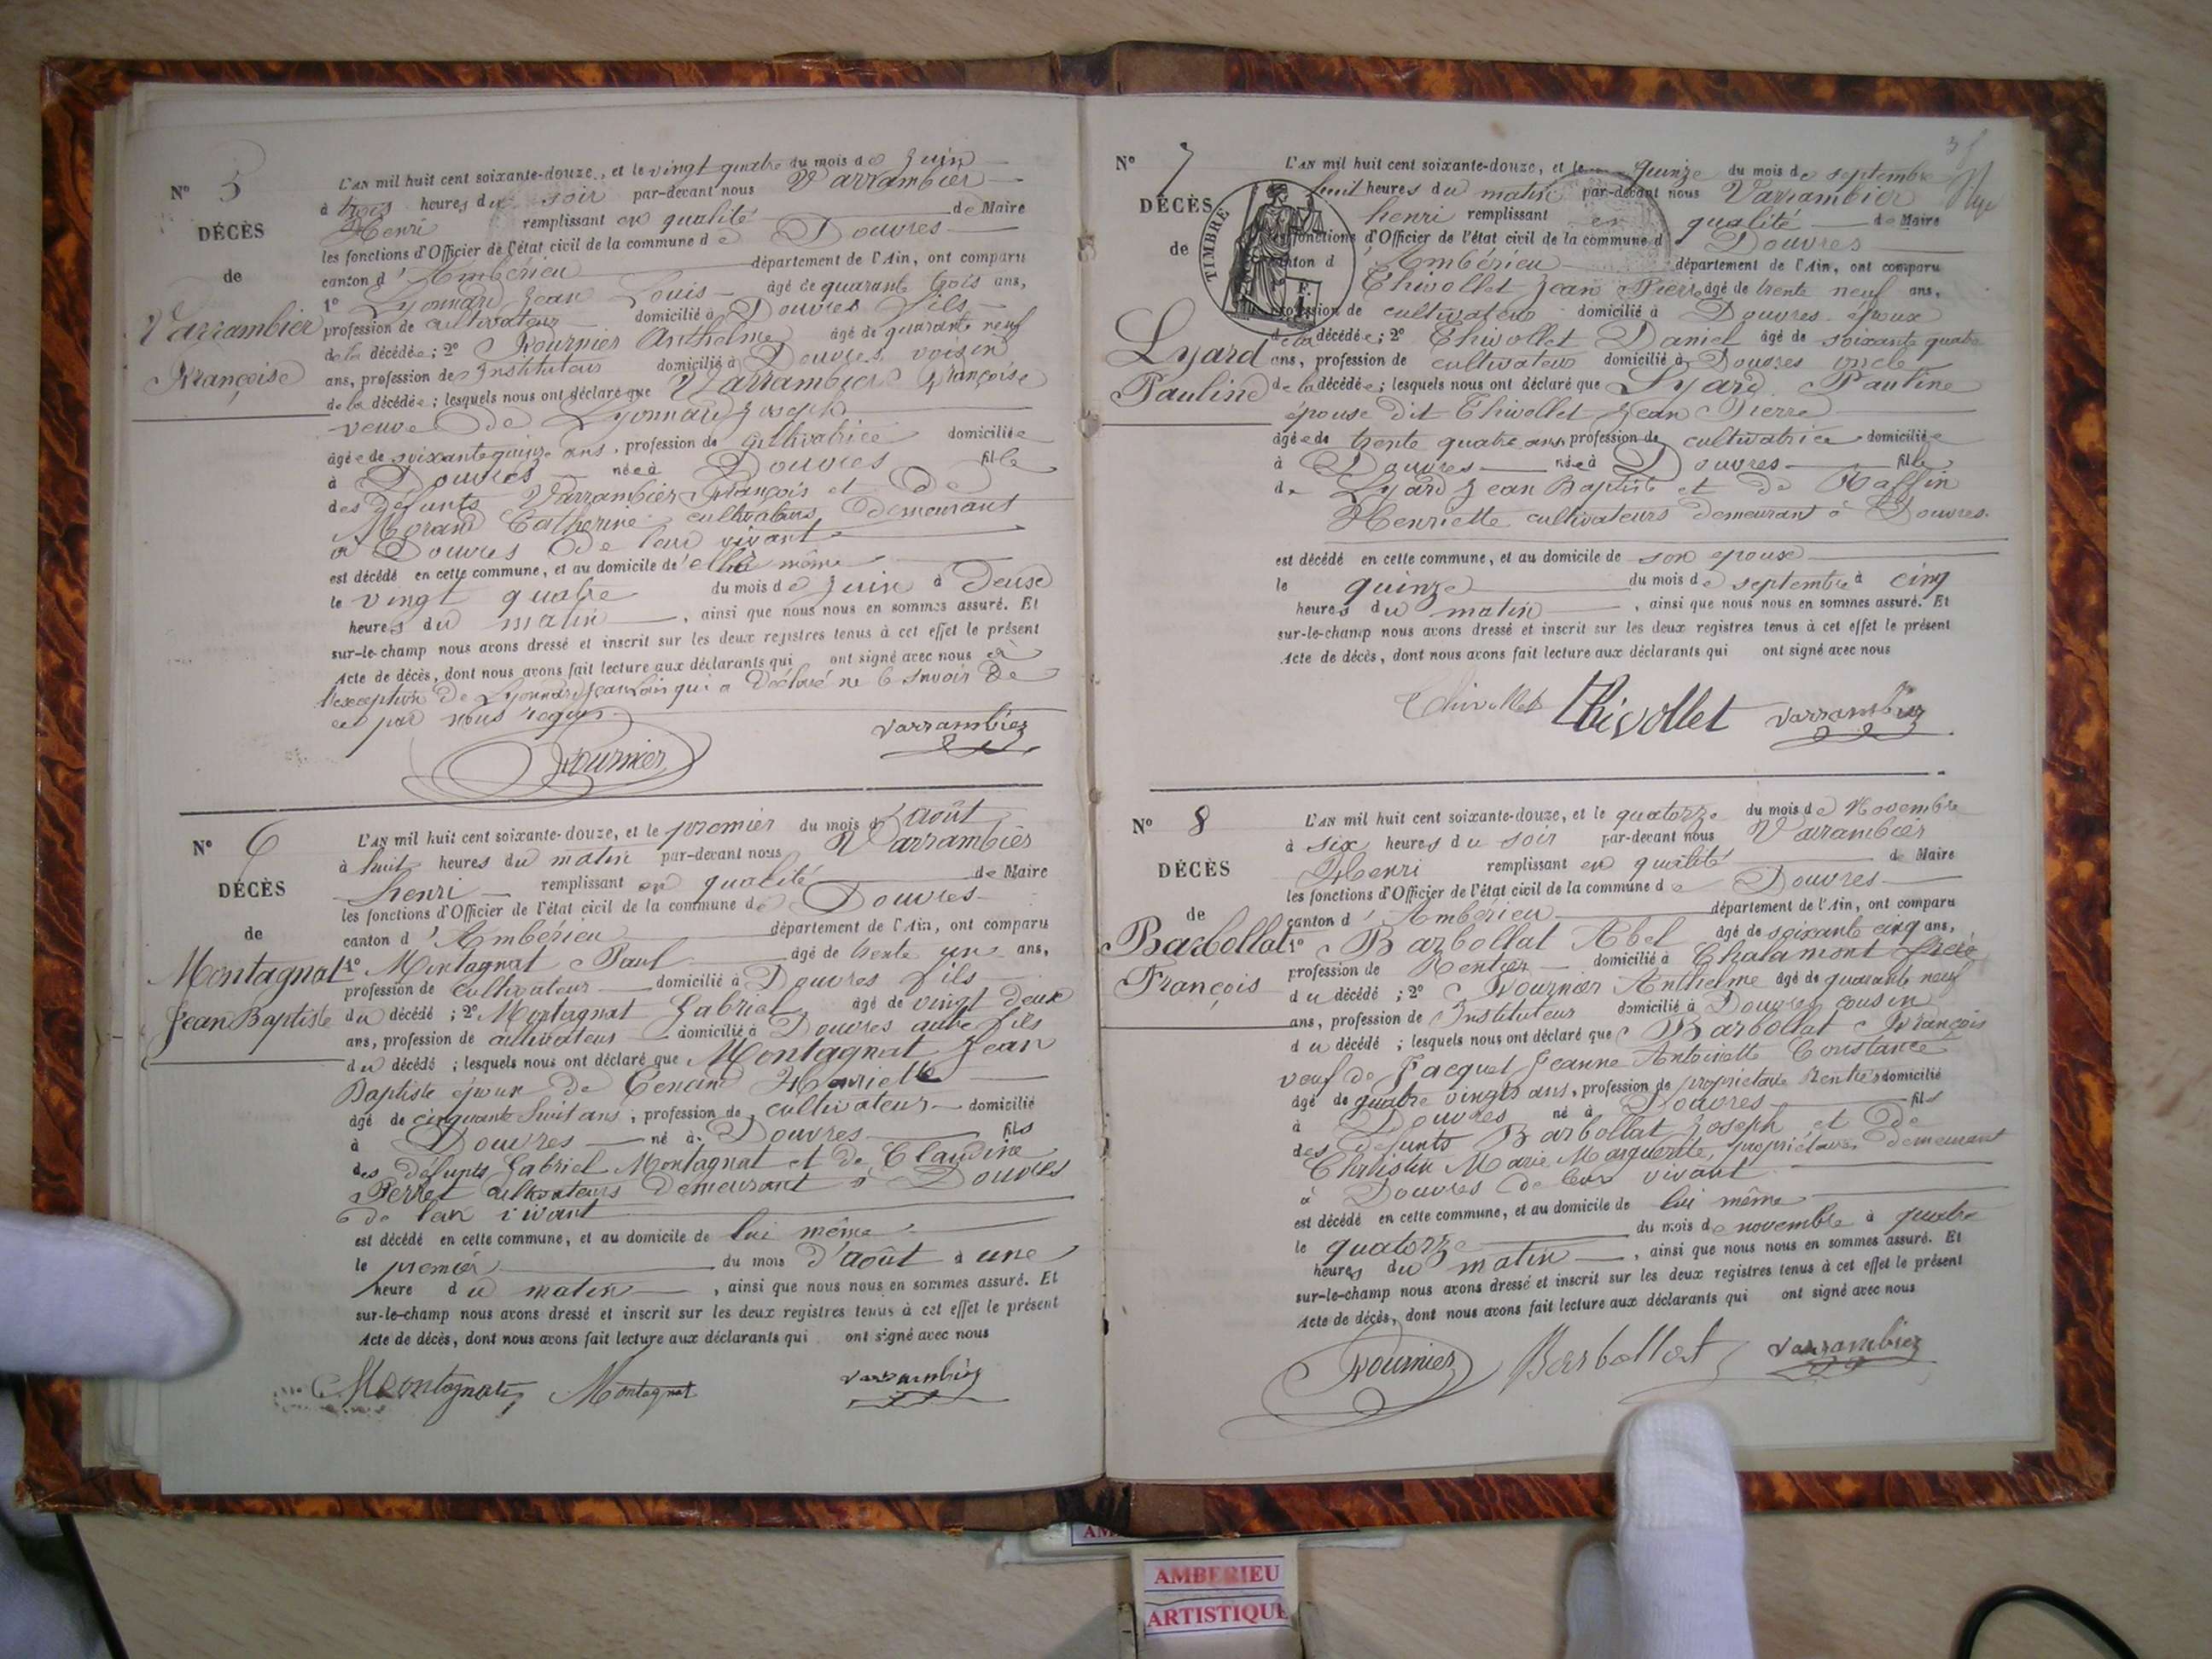 N° 5
DÉCÈS
de
Varrambier
Françoise
L'AN mil huit cent soixante-douze, et le vingt quatre du mois de Juin
à trois heures du soir par-devant nous Varrambier
Henri remplissant en qualité de Maire
les fonctions d'Officier de l'état civil de la commune de Douvres
canton d'Ambérieu département de l'Ain, ont comparu
1° Lyonnard Jean Louis âgé de quarante trois ans,
profession de cultivateur domicilié à Douvres fils
de la décédée ; 2° Fournier Anthelme âgé de quarante neuf
ans, profession de Instituteur domicilié à Douvres, voisin
de la décédée ; lesquels nous ont déclaré que Varrambier Françoise
veuve de Lyonnard Joseph
âgée de soixante quinze ans, profession de cultivatrice domiciliée
à Douvres née à Douvres fille
des défunts Varrambier François et de
Morand Catherine cultivateurs demeurant
à Douvres de leur vivant
est décédé en cette commune, et au domicile de elle même
le vingt quatre du mois de Juin à deux
heures du matin, ainsi que nous nous en sommes assuré. Et
sur-le-champ nous avons dressé et inscrit sur les deux registres tenus à cet effet le présent
Acte de décès, dont nous avons fait lecture aux déclarants qui ont signé avec nous à
l'exception de Lyonnard Jean Louis qui a déclaré ne le savoir de
ce par nous requis
Varrambier
Fournier
N° 6
DÉCÈS
de
Montagnat
Jean Baptiste
L'AN mil huit cent soixante-douze, et le premier du mois d'août
à huit heures du matin par-devant nous Varrambier
henri remplissant en qualité de Maire
les fonctions d'Officier de l'état civil de la commune de Douvres
canton d'Ambérieu département de l'Ain, ont comparu
1° Montagnat Paul âgé de trente un ans,
profession de cultivateur domicilié à Douvres fils
du décédé ; 2° Montagnat Gabriel âgé de vingt deux
ans, profession de cultivateur domicilié à Douvres autre fils
du décédé ; lesquels nous ont déclaré que Montagnat Jean
Baptiste époux de Henriette
âgé de cinquante huit ans, profession de cultivateur domicilié
à Douvres né à Douvres fils
des défunts Gabriel Montagnat et de Claudine
Perret cultivateurs demeurant à Douvres
de leur vivant
est décédé en cette commune, et au domicile de lui même
le premier du mois d'août à une
heure du matin, ainsi que nous nous en sommes assuré. Et
sur-le-champ nous avons dressé et inscrit sur les deux registres tenus à cet effet le présent
Acte de décès, dont nous avons fait lecture aux déclarants qui ont signé avec nous
Montagnat Montagnat Varrambier
N° 7
DÉCÈS
de
Lyard
Pauline
TIMBRE
L'AN mil huit cent soixante-douze, et le quinze du mois de septembre
huit heures du matin par-devant nous Varrambier
henri remplissant en qualité de Maire
fonctions d'Officier de l'état civil de la commune d Douvres
canton d Ambérieu département de l'Ain, ont comparu
Thivollet Jean Pierre âgé de trente neuf ans,
profession de cultivateur domicilié à Douvres époux
de la décédée ; 2° Thivollet Daniel âgé de soixante quatre
ans, profession de cultivateur domicilié à Douvres oncle
de la décédée ; lesquels nous ont déclaré que Lyard Pauline
épouse dit Thivollet Jean Pierre
âgée de trente quatre ans profession de cultivatrice domiciliée
à Douvres née à Douvres fille
de Lyard Jean Baptiste et de Raffin
Henriette cultivateurs demeurant à Douvres.
est décédé en cette commune, et au domicile de son epouse
le quinze du mois de septembre à cinq
heures du matin, ainsi que nous nous en sommes assuré. Et
sur-le-champ nous avons dressé et inscrit sur les deux registres tenus à cet effet le présent
Acte de décès, dont nous avons fait lecture aux déclarants qui ont signé avec nous
Thivollet Thivollet Varrambier
N° 8
DÉCÈS
de
Barbollat
François
L'AN mil huit cent soixante-douze, et le quatorze du mois de Novembre
à six heures du soir par-devant nous Varrambier
Henri remplissant en qualité de Maire
les fonctions d'Officier de l'état civil de la commune de Douvres
canton d'Ambérieu département de l'Ain, ont comparu
1° Barbollat Abel âgé de soixante cinq ans,
profession de Rentier domicilié à Chalamont frère
du décédé ; 2° Fournier Anthelme âgé de quarante neuf
ans, profession de Instituteur domicilié à Douvres cousin
du décédé ; lesquels nous ont déclaré que Barbollat François
veuf de Jacquet Jeanne Antoinette Constance
âgé de quatre vingts ans, profession de propriétaire Rentier domicilié
à Douvres né à Douvres fils
des défunts Barbollat Joseph et de
Marie Marguerite, propriétaires demeurant
à Douvres de leur vivant
est décédé en cette commune, et au domicile de lui même
le quatorze du mois de novembre à quatre
heures du matin, ainsi que nous nous en sommes assuré. Et
sur-le-champ nous avons dressé et inscrit sur les deux registres tenus à cet effet le présent
Acte de décès, dont nous avons fait lecture aux déclarants qui ont signé avec nous
Fournier Barbollat Varrambier
AMBERIEU
ARTISTIQUE